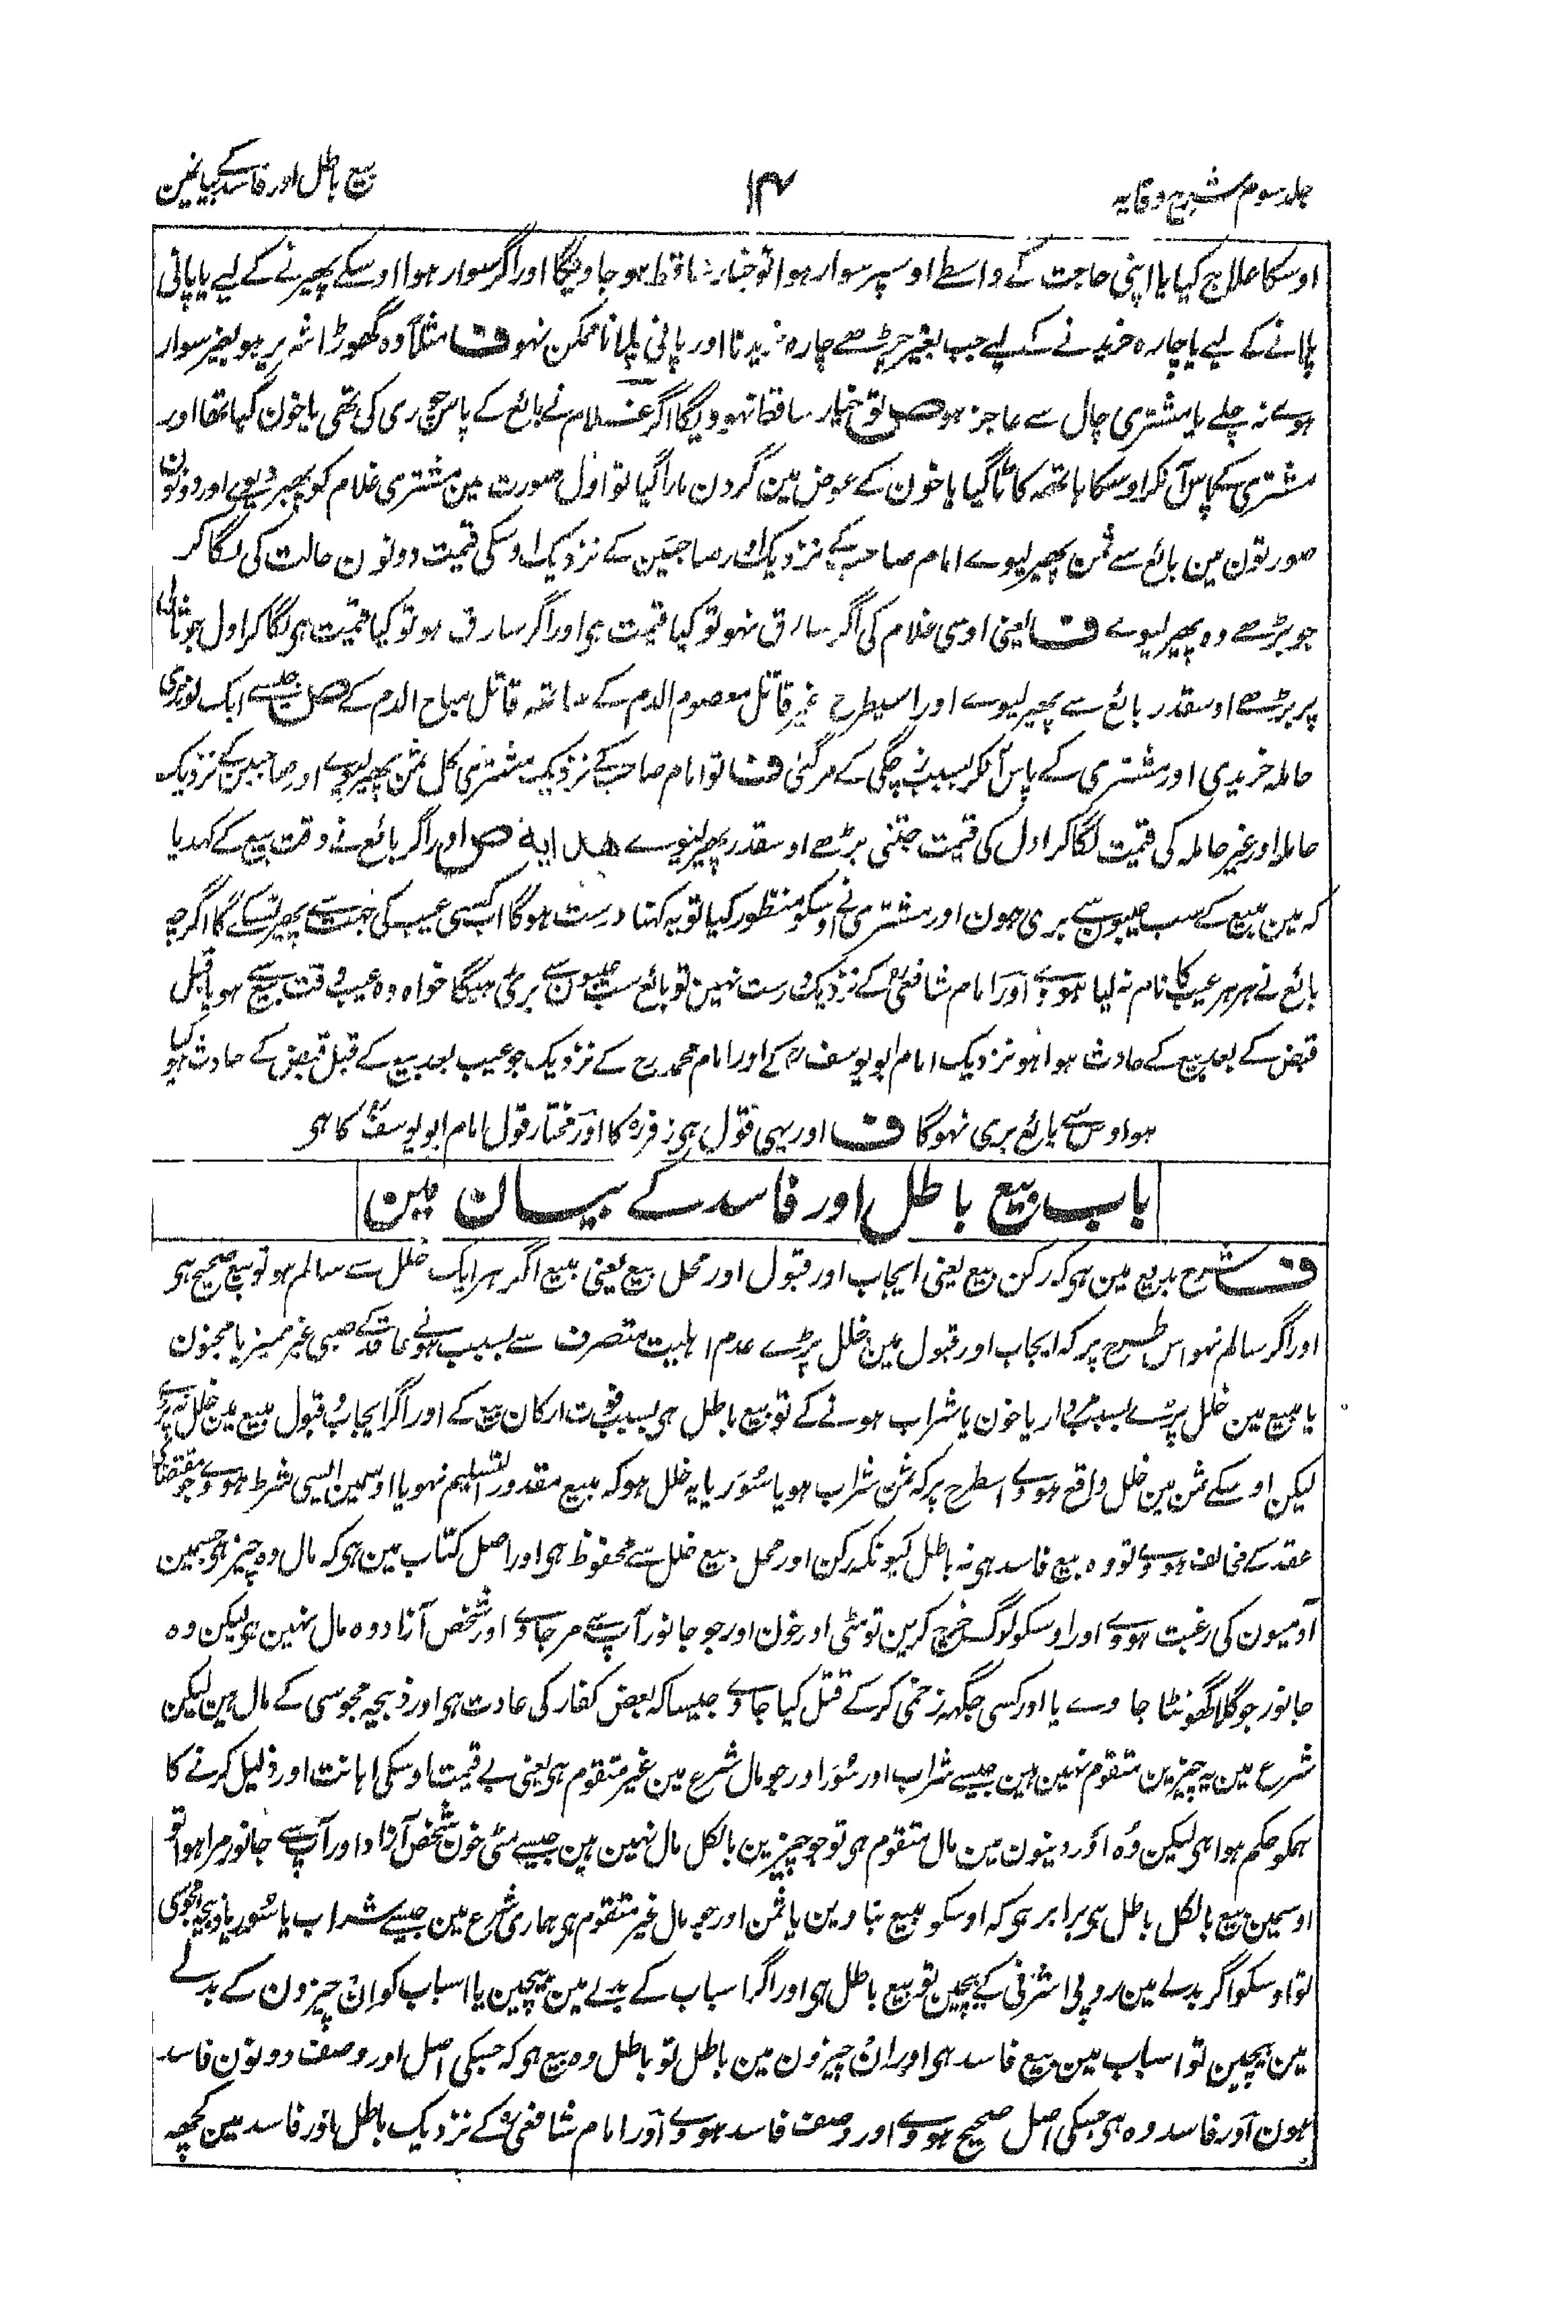 جلد سوم شرح وقایہ
۱۴
بیع باطل اور فاسد کے بیانمین
اوسکا علاج کیا یا اپنی حاجت کے واسطے اوسپر سوار ہوا تو خیار ساقط ہو جاویگا اور اگر سوار ہوا اوسکے پھیرنے کے لیے یا پانی
پلانے کے لیے یا چارہ خریدنے کے لیے جب بغیر چڑھے چارہ خریدنا اور پانی پلانا ممکن نہو ف مثلاً وہ گھوڑا شریر ہو بغیر سوار
ہوے نہ چلے یا مشتری چال سے عاجز ہو ص تو خیار ساقط نہوویگا اگر غلام نے بائع کے پاس چوری کی تھی یا خون کیا تھا اور
مشتری کے پاس آنکر اوسکا ہاتھ کاٹا گیا یا خون کے عوض مین گردن مارا گیا تو اول صورت مین مشتری غلام کو پھیر دیوے اور دونون
صورتون مین بائع سے ثمن پھیر لیوے امام صاحب کے نزدیک اور صاحبین کے نزدیک اوسکی قیمت دونون حالت کی لگا کر
جو بڑھے وہ پھیر لیوے ف یعنی اوسی غلام کی اگر سارق نہو تو کیا قیمت ہی اور اگر سارق ہو تو کیا قیمت ہی لگا کر اول جو ثانی
پر بڑھے اوسقدر بائع سے پھیر لیوے اور اسیطرح غیر قاتل معصوم الدم کے ساتھ قاتل مباح الدم کے ص جیسے ایک لونڈی
حاملہ خریدی اور مشتری کے پاس آنکر بسبب زچگی کے مر گئی ف تو امام صاحب کے نزدیک مشتری کل ثمن پھیر لیوے اور صاحبین کے نزدیک
حاملہ اور غیر حاملہ کی قیمت لگا کر اول کی قیمت جتنی بڑھے اوسقدر پھیر لیوے ھدایہ ص اور اگر بائع نے وقت بیع کے کہدیا
کہ مین مبیع کے سب عیبون سے بری ہون اور مشتری نے اوسکو منظور کیا تو یہ کہنا درست ہوگا اب کسی عیب کی جہت سے پھیر نسکے گا اگرچہ
بائع نے ہر ہر عیب کا نام نہ لیا ہووے اور امام شافعی کے نزدیک درست نہین تو بائع سب عیبون سے بری ہیگا خواہ وہ عیب وقت بیع کے ہو یا قبل
قبض کے بعد بیع کے حادث ہوا ہو نزدیک امام ابو یوسف رح کے اور امام محمد رح کے نزدیک جو عیب بعد بیع کے قبل قبض کے حادث ہو گیا
ہو اوس سے بائع بری نہوگا ف اور یہی قول ہی زفر رح کا اور مختار قول امام ابو یوسف کا ہی
باب بیع باطل اور فاسد کے بیان مین
ف شرح مین ہی کہ رکن بیع یعنی ایجاب اور قبول اور محل بیع یعنی مبیع اگر ہر ایک خلل سے سالم ہو تو بیع صحیح ہی
اور اگر سالم نہو اس طرح پر کہ ایجاب اور قبول مین خلل پڑے عدم اہلیت متصرف سے بسبب ہونے عاقد کے صبی غیر ممیز یا مجنون
یا مبیع مین خلل پڑے بسبب مردار یا خون یا شراب ہونے کے تو بیع باطل ہی بسبب فوت ارکان بیع کے اور اگر ایجاب و قبول و مبیع مین خلل نہ پڑے
لیکن اوسکے ثمن مین خلل واقع ہووے اسطرح پر کہ ثمن شراب ہو یا سُوَر یا یہ خلل ہو کہ مبیع مقدور التسلیم نہو یا اوسمین ایسی شرط ہووے جو مقتضاے
عقد کے مخالف ہووے تو وہ بیع فاسد ہی نہ باطل کیونکہ رکن اور محل بیع خلل سے محفوظ ہی اور اصل کتاب مین ہی کہ مال وہ چیز ہی جسمین
آدمیون کی رغبت ہووے اور اوسکو لوگ خرچ کرین تو مٹی اور خون اور جو جانور آپ سے مر جاوے اور شخص آزاد وہ مال نہین ہی لیکن وہ
جانور جو گلا گھونٹا جاوے یا اور کسی جگہہ زخمی کر کے قتل کیا جاوے جیسا کہ بعض کفار کی عادت ہی اور ذبیحہ مجوسی کے مال ہین لیکن
شرع مین یہ چیزین متقوم نہین ہین جیسے شراب اور سُوَر اور جو مال شرع مین غیر متقوم ہی یعنی بے قیمت اوسکی اہانت اور ذلیل کرنے کا
ہمکو حکم ہوا ہی لیکن وُہ اور دینون مین مال متقوم ہی تو جو چیزین بالکل مال نہین ہین جیسے مٹی خون شخص آزاد اور آپ سے جانور مرا ہوا تو
اوسمین بیع بالکل باطل ہی برابر ہی کہ اوسکو مبیع بناوین یا ثمن اور جو مال غیر متقوم ہی ہماری شرع مین جیسے شراب یا سُور یا ذبیحہ مجوسی
تو اوسکو اگر بدلے مین روپی اشرفی کے بیچین تو بیع باطل ہی اور اگر اسباب کے بدلے مین بیچین یا اسباب کو اِن چیزون کے بدلے
مین بیچین تو اسباب مین بیع فاسد ہی اور اُن چیزون مین باطل تو باطل وہ بیع ہی کہ جسکی اصل اور وصف دونون فاسد
ہون اور فاسد وہ ہی جسکی اصل صحیح ہووے اور وصف فاسد ہووے اور امام شافعی کے نزدیک باطل اور فاسد مین کچھ